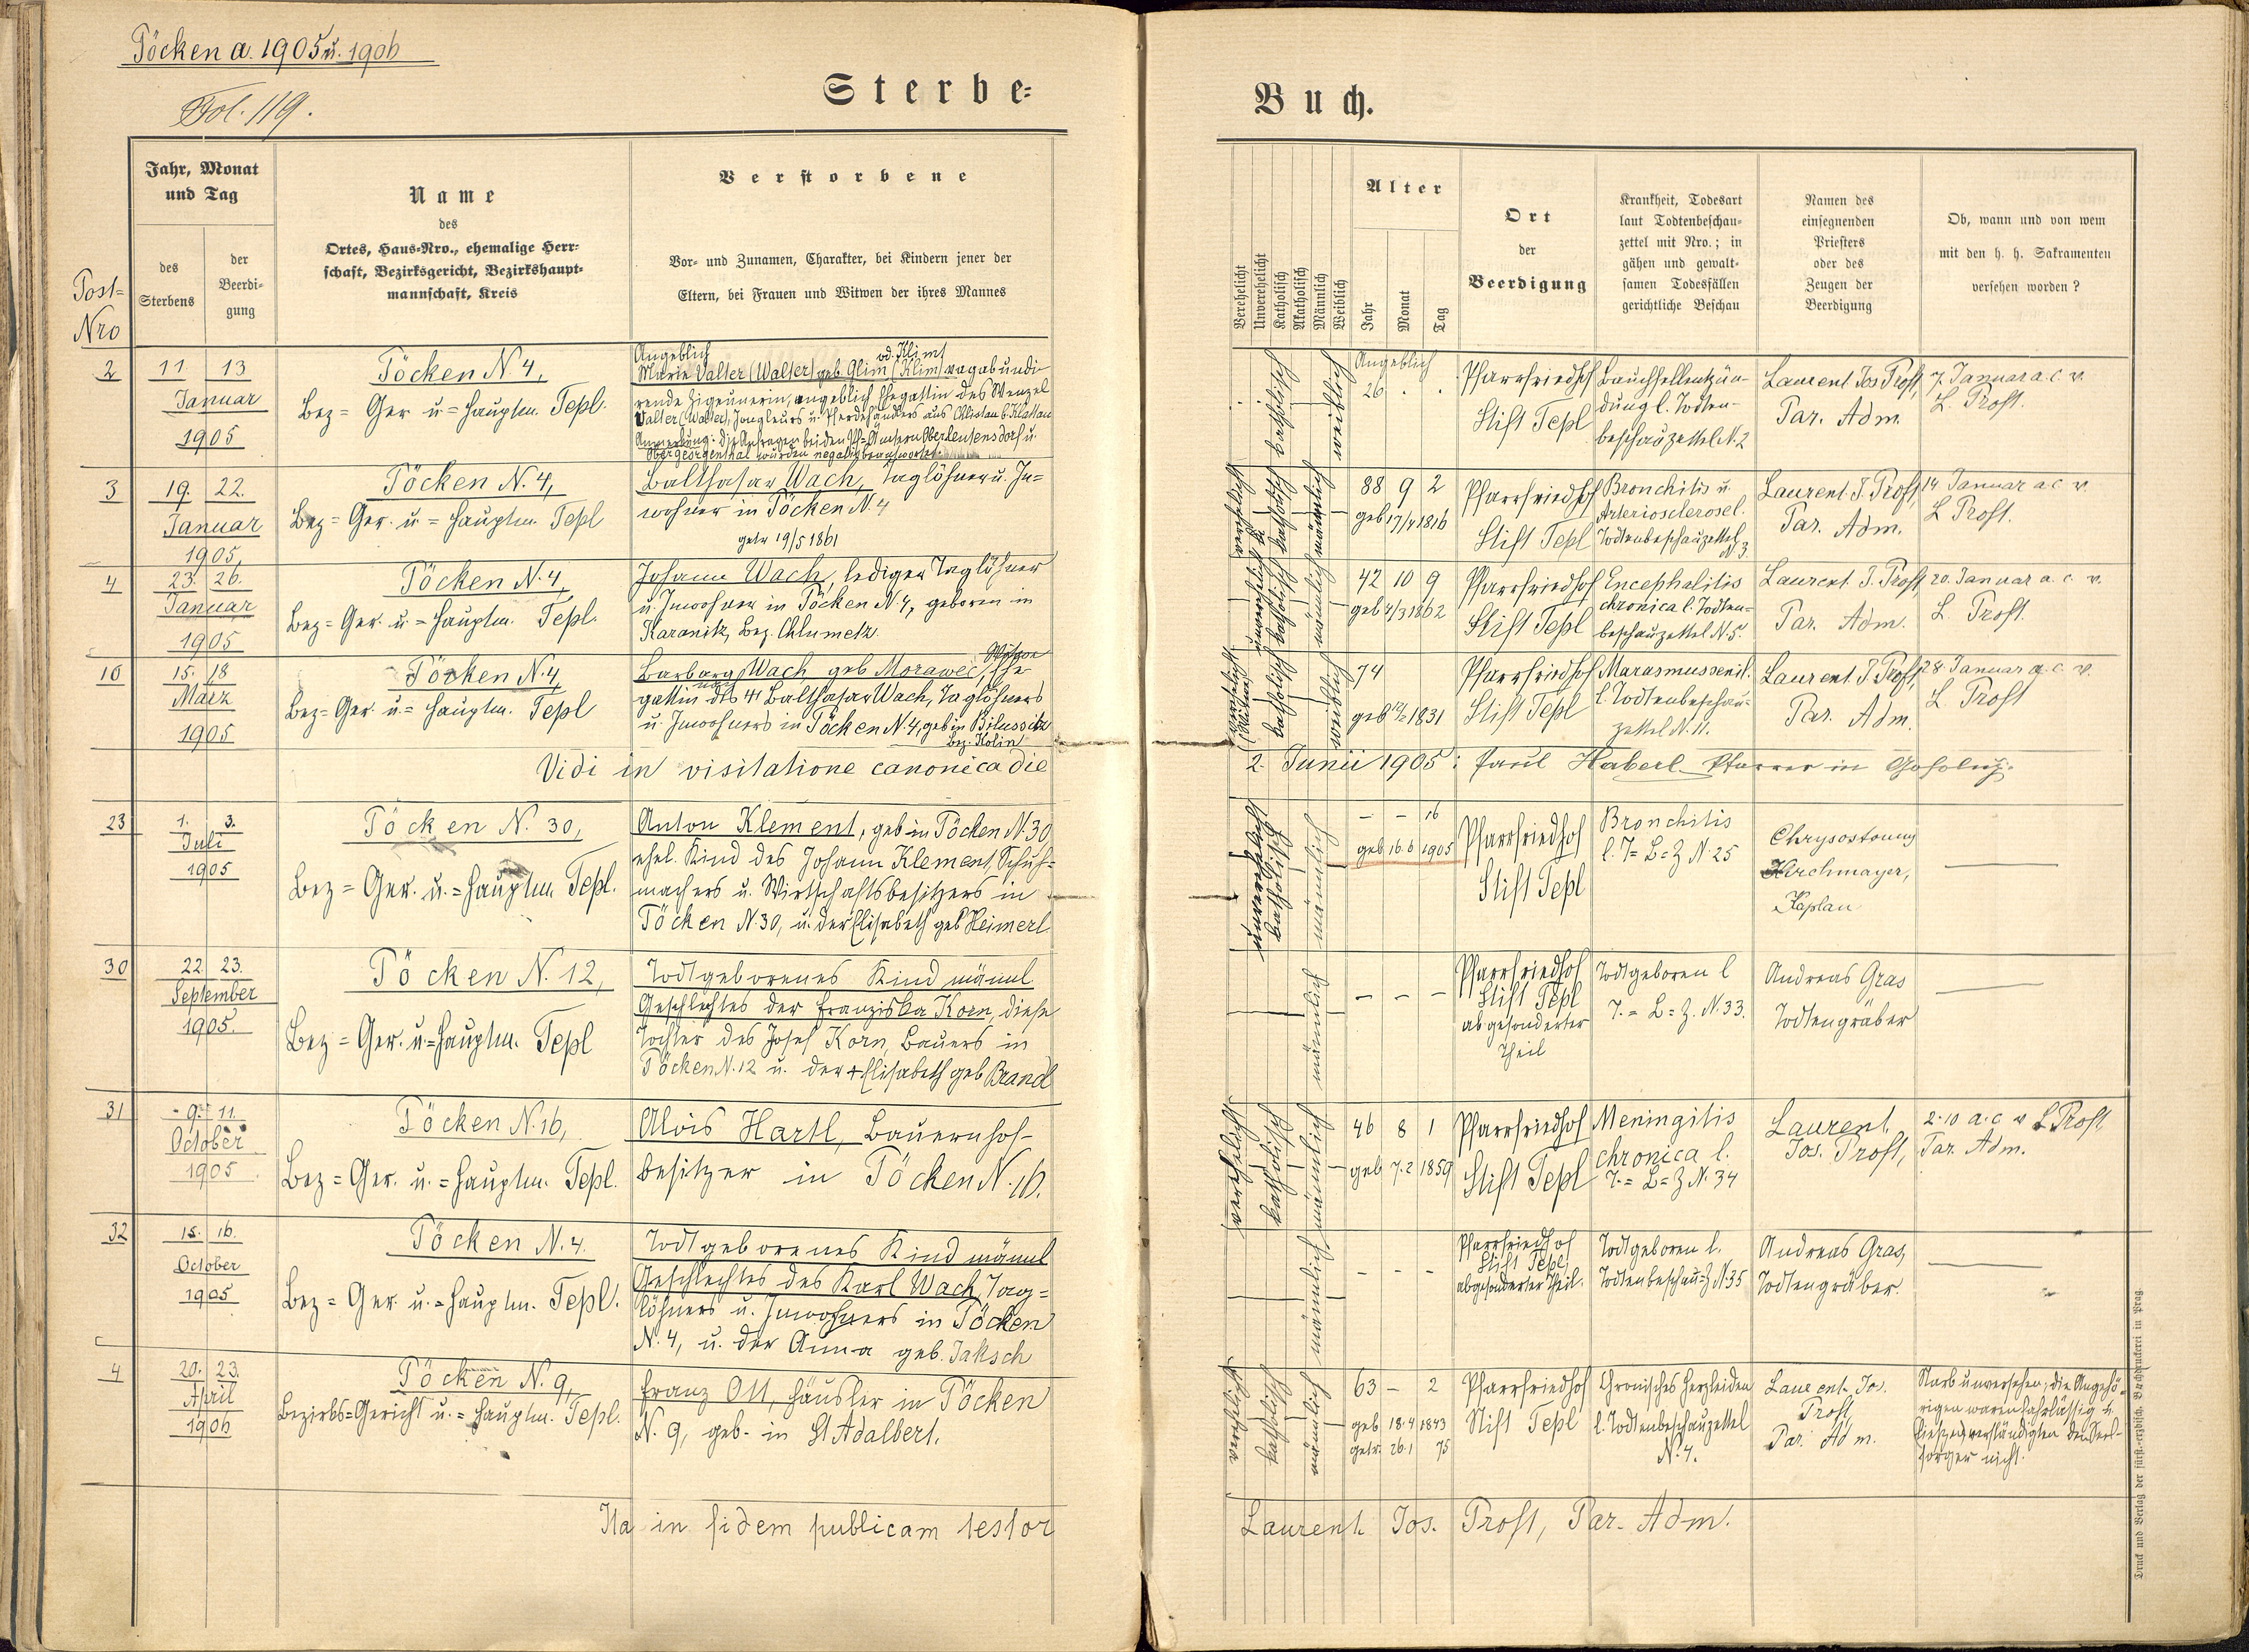 Töcken a. 1905 u. 1906
Fol. 119.
Sterbe-
Jahr, Monat
und Tag
des
Sterbens
der
Beerdi-
gung
Post-
Nro
Name
des
Ortes, Haus-Nro., ehemalige Herr-
schaft, Bezirksgericht, Bezirkshaupt-
mannschaft, Kreis
Verstorbene
Vor- und Zunamen, Charakter, bei Kindern jener der
Eltern, bei Frauen und Witwen der ihres Mannes
2
11 13
Januar
1905
Töcken N 4,
Bez = Ger u = Hauptm. Tepl.
Angeblich od. Klimt
Marie Valter (Walter) geb. Glim (Klim) vagabundi-
rende Zigeunerin, angeblich Ehegattin des Wenzel
Valter (Walter), Jongleurs u. Pferdehändlers aus
Anmerkung: Die Anfragen bei den Pf-Ämtern Oberleutensdorf u.
Obergeorgenthal wurden negativ beantwortet.
3
19. 22.
Januar
1905,
Töcken N. 4,
Bez = Ger. u = Hauptm. Tepl
Balthasar Wach, Taglöhner u. In=
wohner in Töcken N. 4
getr 19/5 1861
4
23. 26.
Januar
1905
Töcken N. 4,
Bez = Ger. u. = Hauptm. Tepl.
Johann Wach, lediger Taglöhner
u. Inwohner in Töcken N. 4, geboren in
Karanitz, Bez. Chlumetz.
10
15. 18
März
1905
Töcken N. 4,
Bez = Ger u. = Hauptm. Tepl
Witwe
Barbara Wach geb Morawec, Ehe-
gattin des Balthasar Wach, Taglöhners
u. Inwohners in Töcken N 4, geb in Bilussitz
Bez. Kolin
Vidi in visitatione canonica die
23
1. 3.
Juli
1905
Töcken N. 30,
Bez = Ger. u. = Hauptm Tepl.
Anton Klement, geb in Töcken N. 30
ehel. Kind des Johann Klement, Schuh-
machers u. Wirtschaftsbesitzers in
Töcken N. 30, u. der Elisabeth geb Heimerl
30
22 23.
September
1905.
Töcken N. 12,
Bez = Ger. u = Hauptm. Tepl
Todtgeborenes Kind männl.
Geschlechtes der Franziska Korn, diese
Tochter des Josef Korn, Bauers in
Töcken N. 12 u. der + Elisabeth geb Brandl
31
9. 11.
October
1905
Töcken N. 16,
Bez = Ger. u. = Hauptm. Tepl.
Alois Hartl, Bauernhof-
besitzer in Töcken N. 16.
32
15. 16.
October
1905
Töcken N. 4.
Bez = Ger u. = Hauptm. Tepl.
Todtgeborenes Kind männl
Geschlechtes des Karl Wach, Tag=
löhners u. Inwohners in Töcken
N. 4, u. der Anna geb. Jaksch
4
20. 23.
April
1906
Töcken N. 9,
Bezirks = Gericht u. = Hauptm. Tepl.
Franz Ott, Häusler in Töcken
N. 9, geb. in St Adalbert.
Ita in fidem publicam testor
Buch.
Verehelicht
Unverehelicht
Katholisch
Akatholisch
Männlich
Weiblich
Alter
Jahr
Monat
Tag
Ort
der
Beerdigung
Krankheit, Todesart
laut Todtenbeschau-
zettel mit Nro.; in
gähen und gewalt-
samen Todesfällen
gerichtliche Beschau
Namen des
einsegnenden
Priesters
oder des
Zeugen der
Beerdigung
Ob, wann und von wem
mit den h. h. Sakramenten
versehen worden?
katholisch
weiblich
Angeblich
26 . .
Pfarrfriedhof
Stift Tepl
Bauchfellentzün-
dung l. Todten-
beschauzettel N. 2
Laurent Jos Proft,
Par. Adm.
7. Januar a. c. v.
L. Proft.
verehelicht
katholisch
männlich
88 9 2
geb 17/4 1816
Pfarrfriedhof
Stift Tepl
Bronchitis u.
Arteriosclerosel.
Todtenbeschauzettel
N. 3
Laurent. J. Proft,
Par. Adm.
14 Januar a c v.
L Proft.
unverehelicht
katholisch
männlich
42 10 9
geb 4/3 1862
Pfarrfriedhof
Stift Tepl
Encephalitis
chronica l. Todten=
beschauzettel N 5.
Laurent. J. Proft,
Par. Adm.
20. Januar a. c. v.
L. Proft.
katholisch
weiblich
74
geb 1831
Pfarrfriedhof
Stift Tepl
Marasmus senil.
l. Todtenbeschau-
zettel N. 11.
Laurent. J Proft,
Par. Adm.
28. Januar a. c. v.
L. Proft
2. Junii 1905: Paul Haberl Pfarrer in
unverehelicht
katholisch
männlich
– – 16
geb 16. 6 1905
Pfarrfriedhof
Stift Tepl
Bronchitis
l. T = B = Z N. 25
Chrysostomus
Kirchmayer,
Kaplan
männlich
– – –
Pfarrfriedhof
Stift Tepl
abgesonderter
Theil
Todtgeboren l
T. = B = Z. N. 33.
Andreas Gras
Todtengräber
verehelicht
katholisch
männlich
46 8 1
geb 7. 2 1859
Pfarrfriedhof
Stift Tepl
Meningitis
chronica l.
T. = B = Z N. 34
Laurent
Jos. Proft,
2. 10 a. c v L Proft
Par. Adm.
männlich
– – –
Pfarrfriedhof
Stift Tepl,
abgesonderter Theil.
Todtgeboren l.
Todtenbeschau=Z N. 35
Andreas Gras,
Todtengräber.
verehelicht
katholisch
männlich
63 – 2
geb 18. 4 1843
getr. 26. 1 75
Pfarrfriedhof
Stift Tepl
Chronisches Herzleiden
l. Todtenbeschauzettel
N. 4.
Laurent. Jos.
Proft,
Par. Adm.
Starb unversehen; die Angehö-
rigen waren fahrlässig u.
verständigten den Seel-
sorger nicht.
Laurent. Jos. Proft, Par. Adm.
Druck und Verlag der fürst.-erzbisch. Buchdruckerei in Prag.